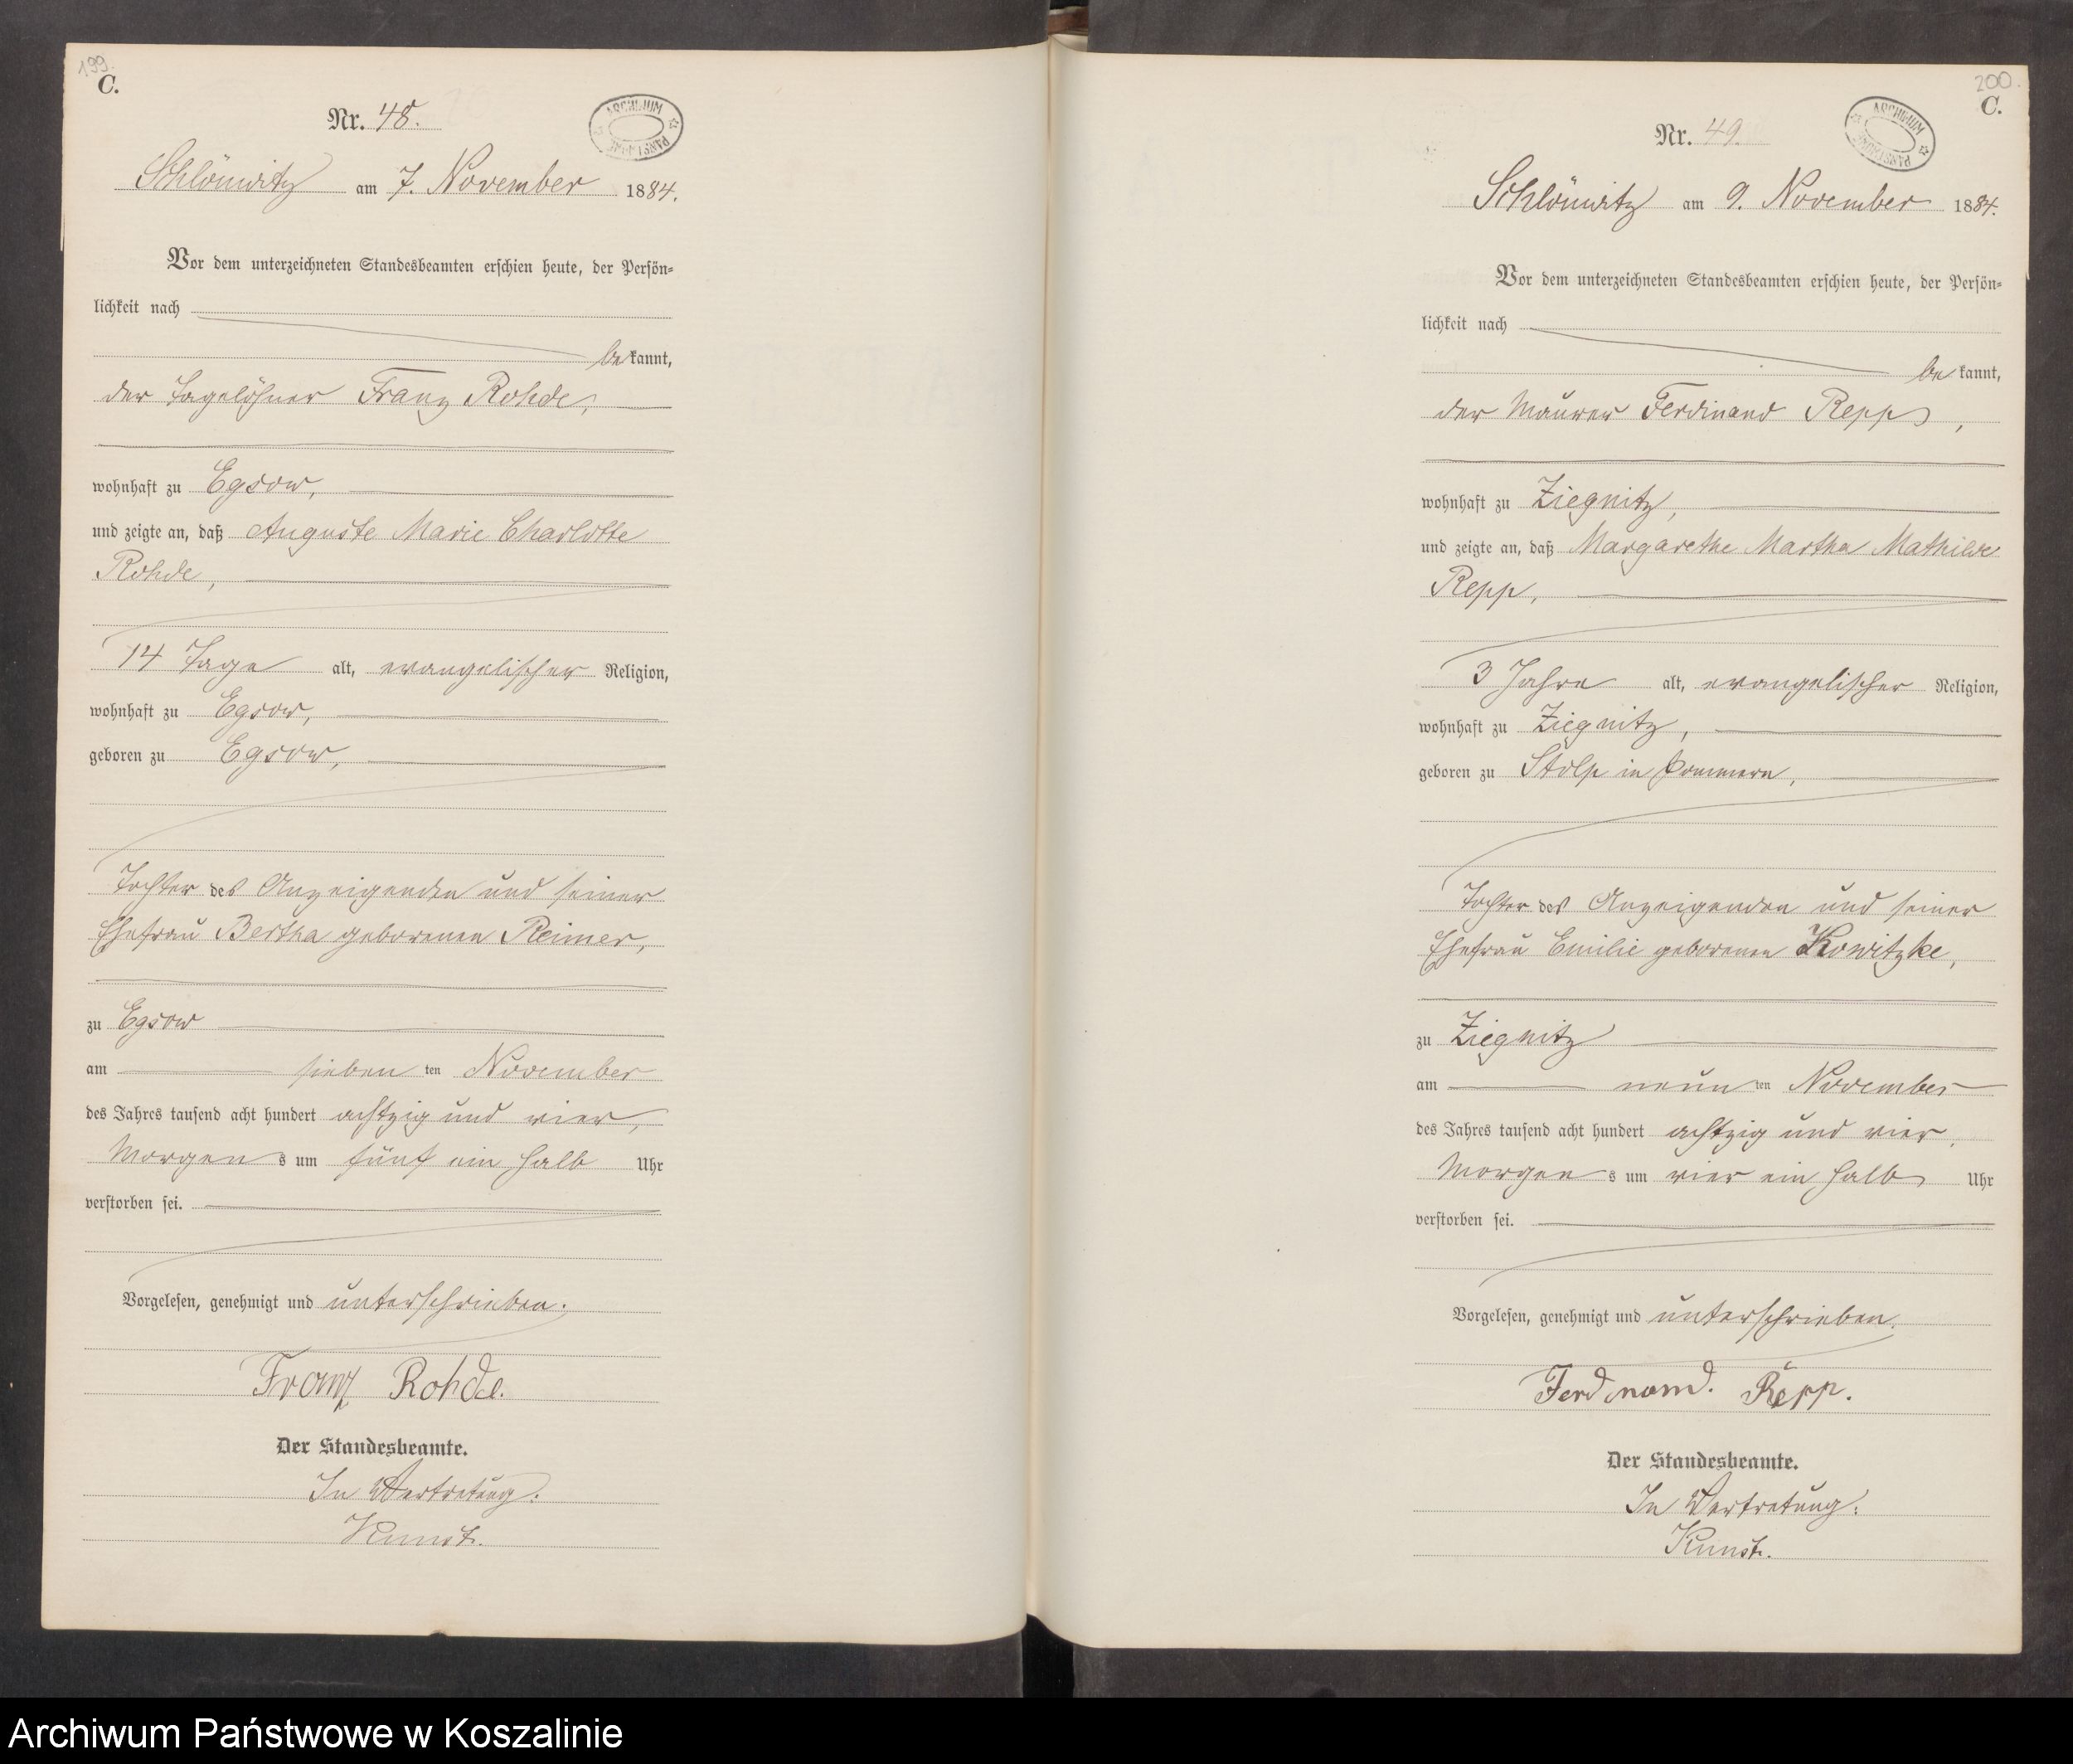 199.
C.
Nr. 48.
ARCHIWUM PAŃSTWOWE
Schlönwitz am 7. November 1884.
Vor dem unterzeichneten Standesbeamten erschien heute, der Persön-
lichkeit nach
bekannt,
der Tagelöhner Franz Rohde,
wohnhaft zu Egsow,
und zeigte an, daß Auguste Marie Charlotte
Rohde,
14 Tage alt, evangelischer Religion,
wohnhaft zu Egsow,
geboren zu Egsow,
Tochter des Anzeigenden und seiner
Ehefrau Bertha geborenen Reimer,
zu Egsow
am sieben ten November
des Jahres tausend acht hundert achtzig und vier,
Morgens um fünf ein halb Uhr
verstorben sei.
Vorgelesen, genehmigt und unterschrieben.
Franz Rohde.
Der Standesbeamte.
In Vertretung.
Kunst.
200.
C.
Nr. 49.
ARCHIWUM PAŃSTWOWE
Schlönwitz am 9. November 1884.
Vor dem unterzeichneten Standesbeamten erschien heute, der Persön-
lichkeit nach
bekannt,
der Maurer Ferdinand Repp,
wohnhaft zu Ziegnitz,
und zeigte an, daß Margarethe Martha Mathilde
Repp,
3 Jahre alt, evangelischer Religion,
wohnhaft zu Ziegnitz,
geboren zu Stolp in Pommern,
Tochter des Anzeigenden und seiner
Ehefrau Emilie geborenen Kowitzke,
zu Ziegnitz
am neun ten November
des Jahres tausend acht hundert achtzig und vier,
Morgens um vier ein halb Uhr
verstorben sei.
Vorgelesen, genehmigt und unterschrieben.
Ferdinand. Repp.
Der Standesbeamte.
In Vertretung.
Kunst.
Archiwum Państwowe w Koszalinie